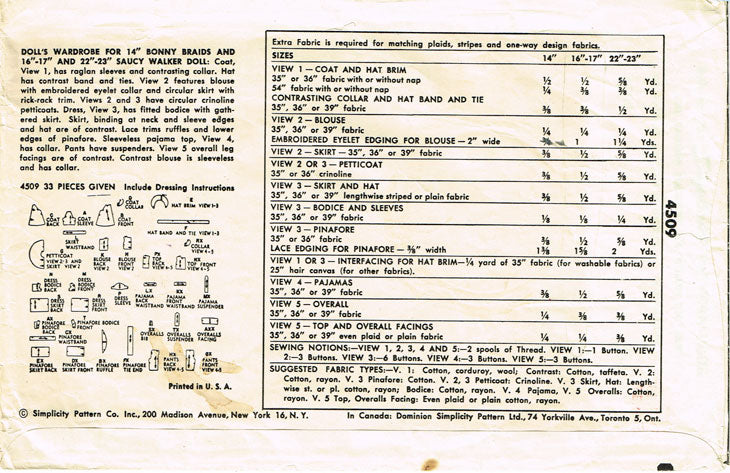 DOLL'S WARDROBE FOR 14" BONNY BRAIDS AND
16"-17" AND 22"-23" SAUCY WALKER DOLL: Coat,
View 1, has raglan sleeves and contrasting collar. Hat
has contrast band and ties. View 2 features blouse
with embroidered eyelet collar and circular skirt with
rick-rack trim. Views 2 and 3 have circular crinoline
petticoats. Dress, View 3, has fitted bodice with gath-
ered skirt. Skirt, binding at neck and sleeve edges
and hat are of contrast. Lace trims ruffles and lower
edges of pinafore. Sleeveless pajama top, View 4,
has collar. Pants have suspenders. View 5 overall leg
facings are of contrast. Contrast blouse is sleeveless
and has collar.
4509 33 PIECES GIVEN Include Dressing Instructions
COAT BACK
COAT SLEEVE
COAT FRONT
COAT COLLAR
HAT BRIM VIEW 1-3
HAT BAND AND TIE VIEW 1-3
SKIRT WAISTBAND
COLLAR VIEW 4-5
PETTICOAT VIEW 2-3 AND SKIRT VIEW 2
BLOUSE BACK VIEW 2
BLOUSE FRONT VIEW 2
TOP BACK VIEW 4-5
TOP FRONT VIEW 4-5
DRESS BODICE BACK
DRESS BODICE FRONT
DRESS SKIRT BACK
DRESS SKIRT FRONT
DRESS SLEEVE
PAJAMA BACK WAISTBAND
PAJAMA FRONT WAISTBAND
PAJAMA SUSPENDER
PINAFORE BODICE BACK
PINAFORE BODICE FRONT
PINAFORE WAISTBAND
OVERALLS BIB
OVERALLS SUSPENDER
OVERALLS FACING
PINAFORE SKIRT BACK
PINAFORE SKIRT FRONT
PINAFORE RUFFLE
PINAFORE TIE END
PANTS BACK VIEW 4-5
PANTS FRONT VIEW 4-5
Printed in U. S. A.
Extra Fabric is required for matching plaids, stripes and one-way design fabrics.
SIZES 14" 16"-17" 22"-23"
VIEW 1 — COAT AND HAT BRIM
35" or 36" fabric with or without nap ½ ½ ⅝ Yd.
54" fabric with or without nap ¼ ⅜ ⅜ Yd.
CONTRASTING COLLAR AND HAT BAND AND TIE
35", 36" or 39" fabric ⅜ ⅜ ½ Yd.
VIEW 2 — BLOUSE
35", 36" or 39" fabric ¼ ¼ ¼ Yd.
EMBROIDERED EYELET EDGING FOR BLOUSE — 2" wide 1 1¼ Yds.
VIEW 2 — SKIRT — 35", 36" or 39" fabric ⅜ ½ ⅝ Yd.
VIEW 2 OR 3 — PETTICOAT
35" or 36" crinoline ⅜ ½ ⅝ Yd.
VIEW 3 — SKIRT AND HAT
35", 36" or 39" lengthwise striped or plain fabric ⅜ ½ ⅝ Yd.
VIEW 3 — BODICE AND SLEEVES
35", 36" or 39" fabric ⅛ ⅛ ¼ Yd.
VIEW 3 — PINAFORE
35" or 36" fabric ⅜ ½ ⅝ Yd.
LACE EDGING FOR PINAFORE — ⅜" width 1⅜ 1⅝ 2 Yds.
VIEW 1 OR 3 — INTERFACING FOR HAT BRIM — ¼ yard of 35" fabric (for washable fabrics) or
25" hair canvas (for other fabrics).
VIEW 4 — PAJAMAS
35", 36" or 39" fabric ⅜ ½ ⅝ Yd.
VIEW 5 — OVERALL
35", 36" or 39" fabric ¼ ⅜ ⅜ Yd.
VIEW 5 — TOP AND OVERALL FACINGS
35", 36" or 39" even plaid or plain fabric ¼ ¼ ⅜ Yd.
SEWING NOTIONS:—VIEW 1, 2, 3, 4 AND 5:—2 spools of Thread. VIEW 1:—1 Button. VIEW
2:—3 Buttons. VIEW 3:—6 Buttons. VIEW 4:—3 Buttons. VIEW 5:—3 Buttons.
SUGGESTED FABRIC TYPES:—V. 1: Cotton, corduroy, wool; Contrast: Cotton, taffeta. V. 2:
Cotton, rayon. V. 3 Pinafore: Cotton. V. 2, 3 Petticoat: Crinoline. V. 3 Skirt, Hat: Length-
wise st. or pl. cotton, rayon; Bodice: Cotton, rayon. V. 4 Pajama, V. 5 Overalls: Cotton,
rayon. V. 5 Top, Overalls Facing: Even plaid or plain cotton, rayon.
4509
© Simplicity Pattern Co. Inc., 200 Madison Avenue, New York 16, N. Y. In Canada: Dominion Simplicity Pattern Ltd., 74 Yorkville Ave., Toronto 5, Ont.